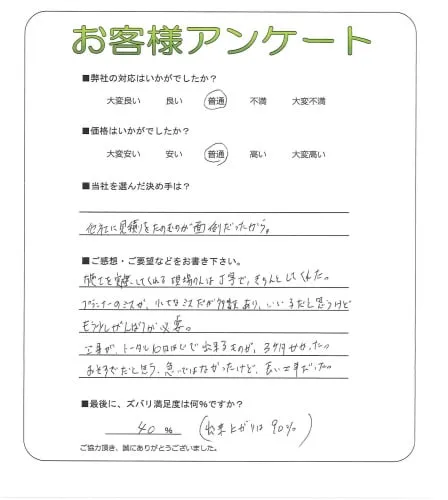 お客様アンケート
■弊社の対応はいかがでしたか?
大変良い 良い 普通 不満 大変不満
■価格はいかがでしたか?
大変安い 安い 普通 高い 大変高い
■当社を選んだ決め手は?
他社に見積りをたのむのが面倒だったから。
■ご感想・ご要望などをお書き下さい。
施工を実際してくれる現場の人は丁寧で、きちんとしてくれた。
プランナーのミスが、小さなミスだが多数あり、いい方だと思うけど
もう少しがんばりが必要。
工事が、トータル10日ほどで出来るものが、3ヶ月かかった。
おそすぎだと思う、急いではなかったけど、長い工事だった。
■最後に、ズバリ満足度は何%ですか?
40 % (出来上がりは90%)
ご協力頂き、誠にありがとうございました。